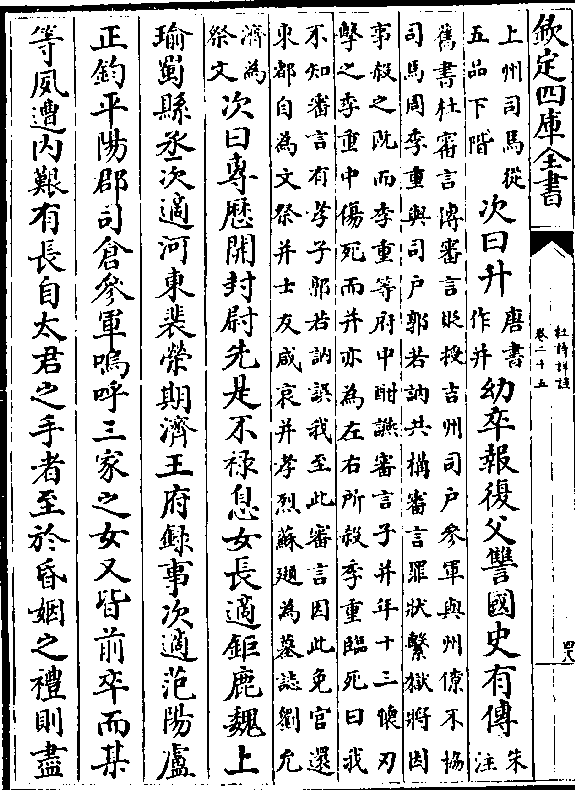 欽定四庫全書
杜詩詳註
卷二十五
四八
上州司馬從
五品下階
次曰升
唐書
作并
幼卒報復父讐國史有傳
朱
注
舊書杜審言傳審言貶授吉州司戶參軍與州僚不協
司馬周季重與司戶郭若訥共構審言罪狀繫獄將因
事殺之既而季重等府中酣讌審言子并年十三懷刃
擊之季重中傷死而并亦為左右所殺季重臨死曰我
不知審言有孝子郭若訥誤我至此審言因此免官還
東都自為文祭并士友咸哀并孝烈蘇頲為墓誌劉允
濟為
祭文
次曰專歷開封尉先是不祿息女長適鉅鹿魏上
瑜蜀縣丞次適河東裴榮期濟王府錄事次適范陽盧
正鈞平陽郡司倉參軍嗚呼三家之女又皆前卒而某
等夙遭內艱有長自太君之手者至於昏姻之禮則盡